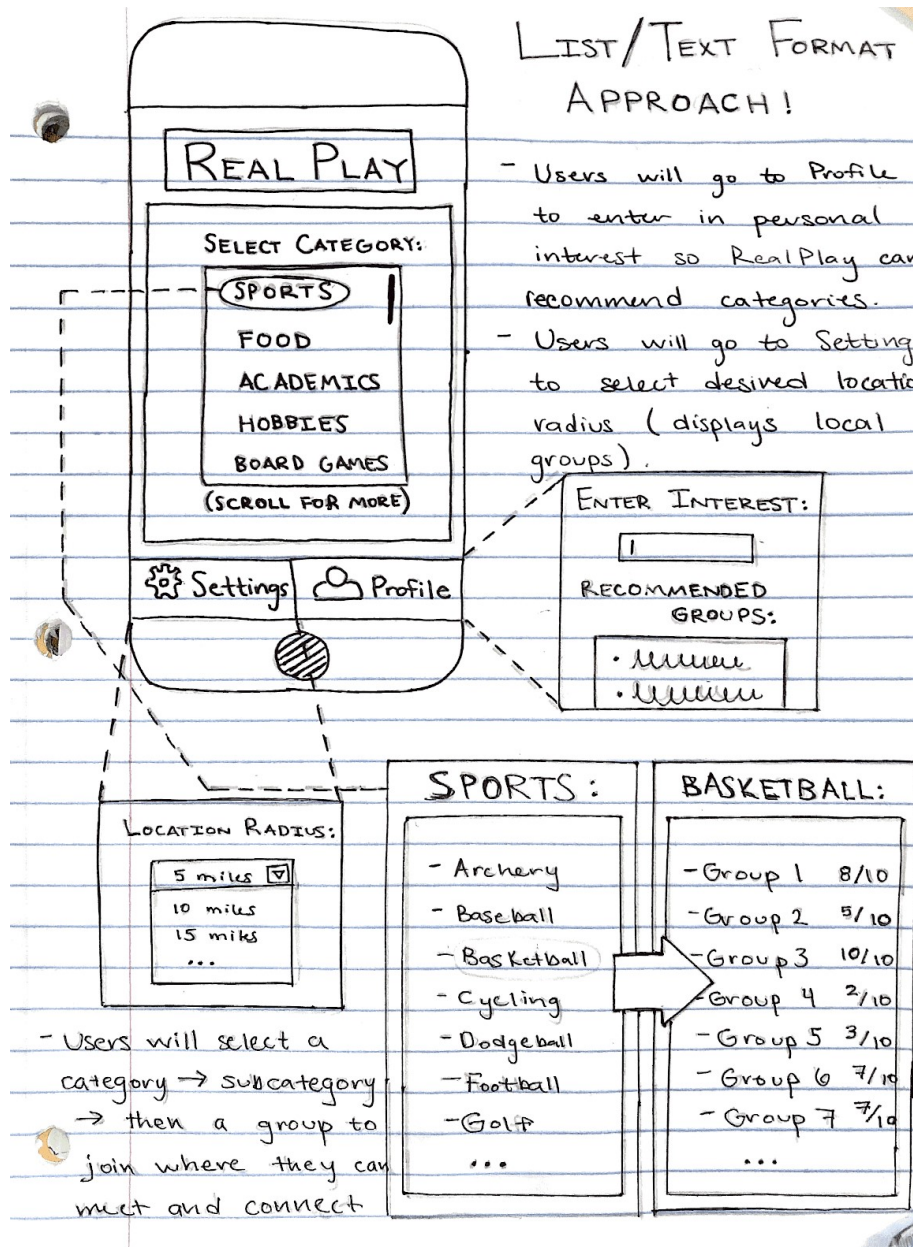 LIST/TEXT FORMAT
APPROACH!
REAL PLAY
SELECT CATEGORY:
SPORTS
FOOD
ACADEMICS
HOBBIES
BOARD GAMES
(SCROLL FOR MORE)
Settings
Profile
- Users will go to Profile
to enter in personal
interest so RealPlay can
recommend categories.
- Users will go to Setting
to select desired locatio
radius (displays local
groups).
ENTER INTEREST:
RECOMMENDED
GROUPS:
LOCATION RADIUS:
5 miles
10 miles
15 miles
...
- Users will select a
category → subcategory
→ then a group to
join where they can
meet and connect
SPORTS:
- Archery
- Baseball
- Basketball
- Cycling
- Dodgeball
- Football
- Golf
...
BASKETBALL:
- Group 1 8/10
- Group 2 5/10
- Group 3 10/10
- Group 4 2/10
- Group 5 3/10
- Group 6 7/10
- Group 7 7/10
...